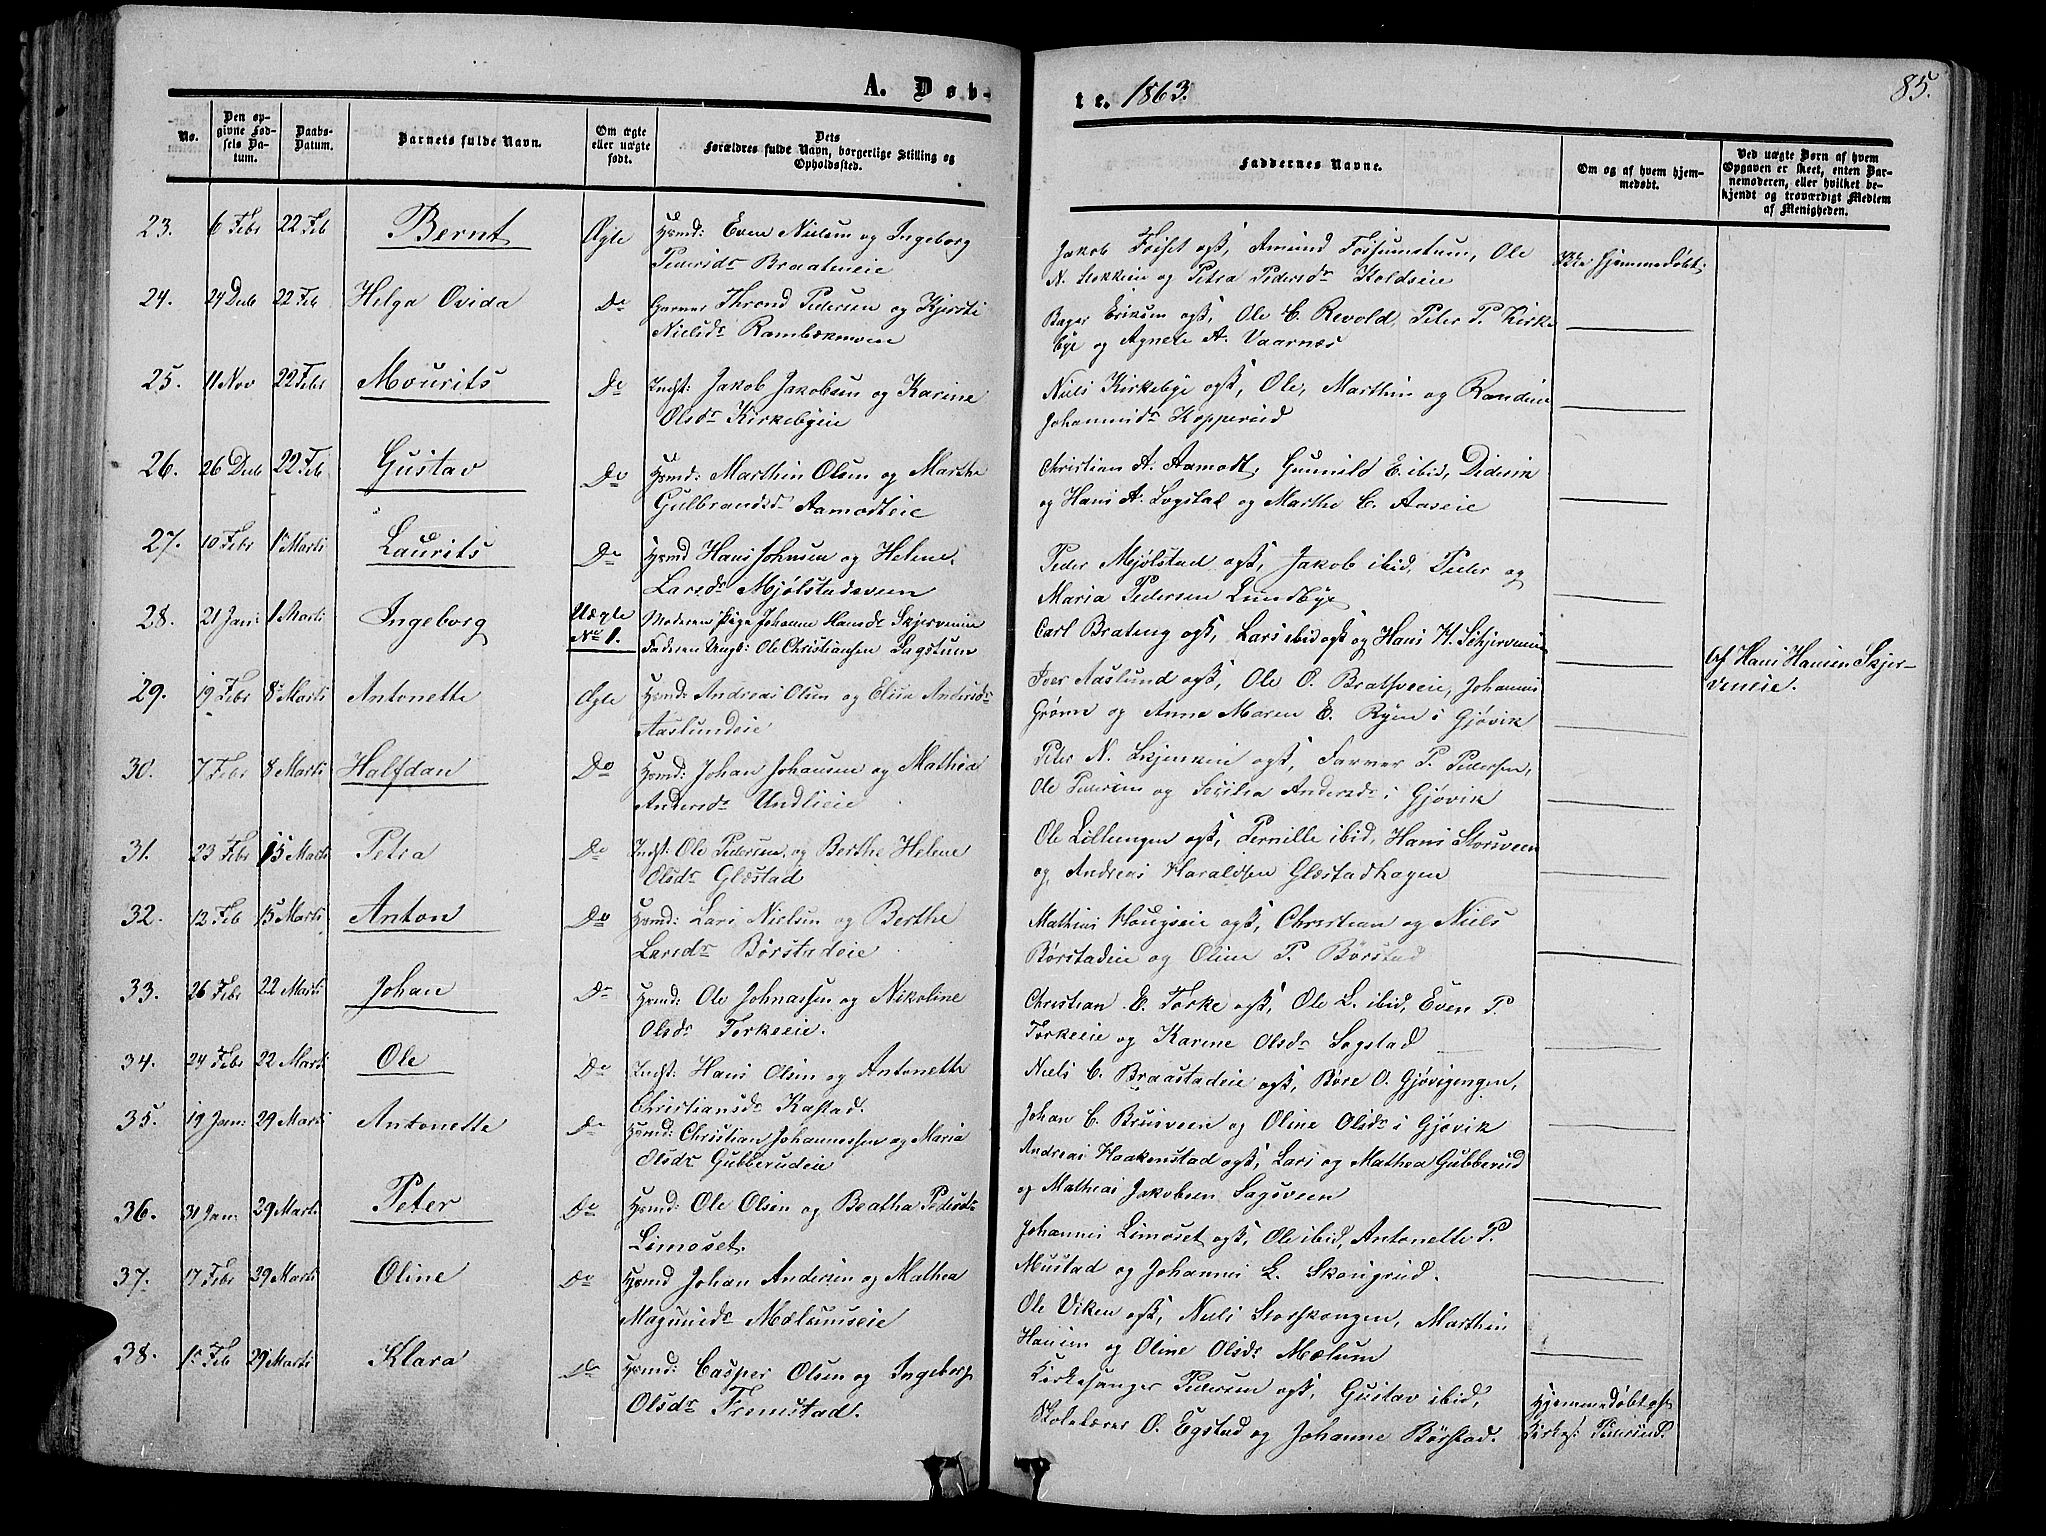 A. Døb-
te. 1863.
85.
No.
Den opgivne Fødsels Datum.
Daabs-Datum.
Barnets fulde Navn.
Om ægte eller uægte født.
Dets Forældres fulde Navn, borgerlige Stilling og Opholdssted.
Faddernes Navne.
Om og af hvem hjemmedøbt.
Ved uægte Børn af hvem Opgaven er skeet, enten Barnemoderen, eller hvilket bekjendt og troværdigt Medlem af Menigheden.
23. 6 Febr 22 Feb Bernt Ægte Hsmd: Even Nielsen og Ingeborg
Pedersdr Braateneie
Jakob Fosset ogst, Amund Fossumstuen, Ole
N. Stokkeie og Petra Pedersdr Skoldseie
Ikke hjemmedøbt.
24. 24 Decb 22 Feb Helga Ovida Do Garver Thrond Pedersen og Kjersti
Nielsdr Rambækmoen
Bager Eriksen ogst, Ole C. Revold, Peter P. Kirke
bye og Agnete A. Vaarnæs
25. 11 Nov 22 Febr Mourits Do Indst: Jakob Jakobsen og Karine
Olsdr Kirkebyeie
Niels Kirkebye ogst, Ole, Marthin og Randine
Johannesdr Kopperud
26. 26 Decb 22 Feb Gustav Do Hsmd: Marthin Olsen og Marthe
Gulbrandsdr Aamodteie
Christian A. Aamodt, Gunnild E. ibid, Diderik
og Hans A. Sogstad og Marthe C. Aaseie
27. 10 Febr 1 Marti Laurits Do Hsmd Hans Johnsen og Helene
Larsdr Mjølstadsveen
Peder Mjølstad ogst, Jakob ibid, Peder og
Maria Pedersen Lundbye
28. 21 Jan: 1 Marti Ingeborg Uægte
No 1.
Moderen Pige Johanne Hansdr Skjerveneie
Faderen Ungk: Ole Christiansen Sagstuen
Carl Brateng ogst, Lars ibid ogst og Hans H. Skjerveneie
Af Hans Hansen Skjer-
veneie.
29. 19 Febr 8 Marti Antonette Ægte Hsmd: Andreas Olsen og Elise Andersdr
Aaslundeie
Iver Aaslund ogst, Ole O. Bratsveeie, Johannes
Grønn og Anne Maren E. Ryen i Gjøvik
30. 7 Febr 8 Marti Halfdan Do Hsmd: Johan Johansen og Mathea
Andersdr Undlieie
Peter N. Skjenken ogst, Farver P. Pedersen,
Ole Pedersen og Andersdr i Gjøvik
31. 23 Febr 15 Marti Petra Do Indst: Ole Pedersen og Berthe Helene
Olsdr Glæstad
Ole Lillengen ogst, Pernille ibid, Hans Storsveen
og Andreas Haraldsen Glæstadhagen
32. 12 Feb 15 Marti Anton Do Hsmd: Lars Nielsen og Berthe
Larsdr Børstadeie
Mathias Hougseie ogst, Christian og Niels
Børstadeie og Oline P. Børstad
33. 26 Febr 22 Marti Johan Do Hsmd: Ole Johnassen og Nikoline
Olsdr Torkeeie.
Christian E. Torke ogst, Ole L. ibid, Even P.
Torkeeie og Karine Olsdr Sogstad
34. 24 Feb 22 Marti Ole Do Indst: Hans Olsen og Antonette
Christiansdr Kastad.
Niels C. Braastadeie ogst, Børe O. Gjøvigengen,
Johan C. Brusveen og Oline Olsdr i Gjøvik
35. 19 Jan: 29 Marti Antonette Do Hsmd: Christian Johannessen og Maria
Olsdr Gubberudeie
Andreas Haakenstad ogst, Lars og Mathea Gubberud
og Mathias Jakobsen Sagsveen
36. 31 Jan: 29 Marti Peter Do Hsmd: Ole Olsen og Beatha Pedersdr
Limoset.
Johannes Limoset ogst, Ole ibid, Antonette P.
Mustad og Johannes L. Skougrud.
37. 17 Febr 29 Marti Oline Do Hsmd Johan Andersen og Mathea
Magnusdr Mælumseie
Ole Viken ogst, Niels Storskougen, Marthin
Hansen og Oline Olsdr Mælum
38. 1 Feb 29 Marti Klara Do Hsmd: Casper Olsen og Ingeborg
Olsdr Fremstad.
Kirkesanger Pedersen ogst, Gustav ibid,
Skolelærer O. Egstad og Johanne Børstad.
Hjemmedøbt af
Kirkes: Pedersen.